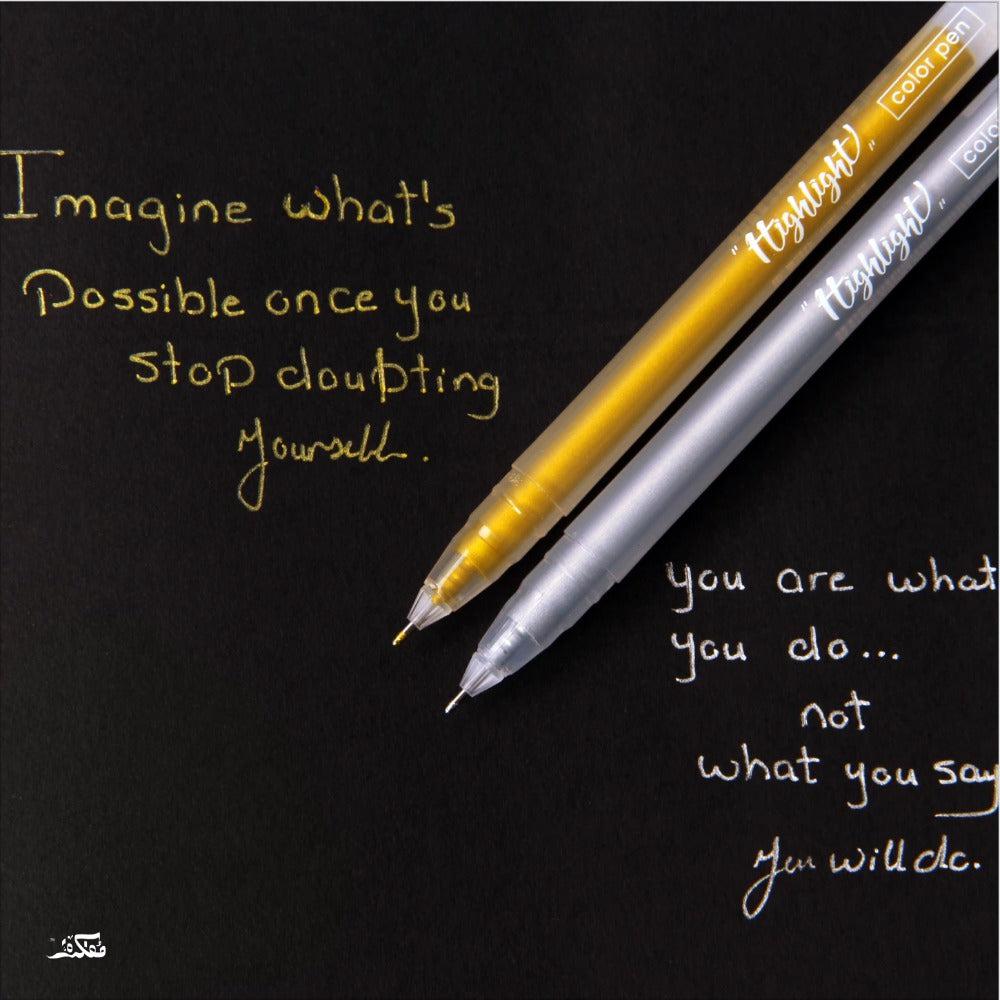 Imagine what's
Possible once you
stop doubting
yourself.
"Highlight"
color pen
"Highlight"
colo
you are what
you do...
not
what you say
you will do.
مفكرة